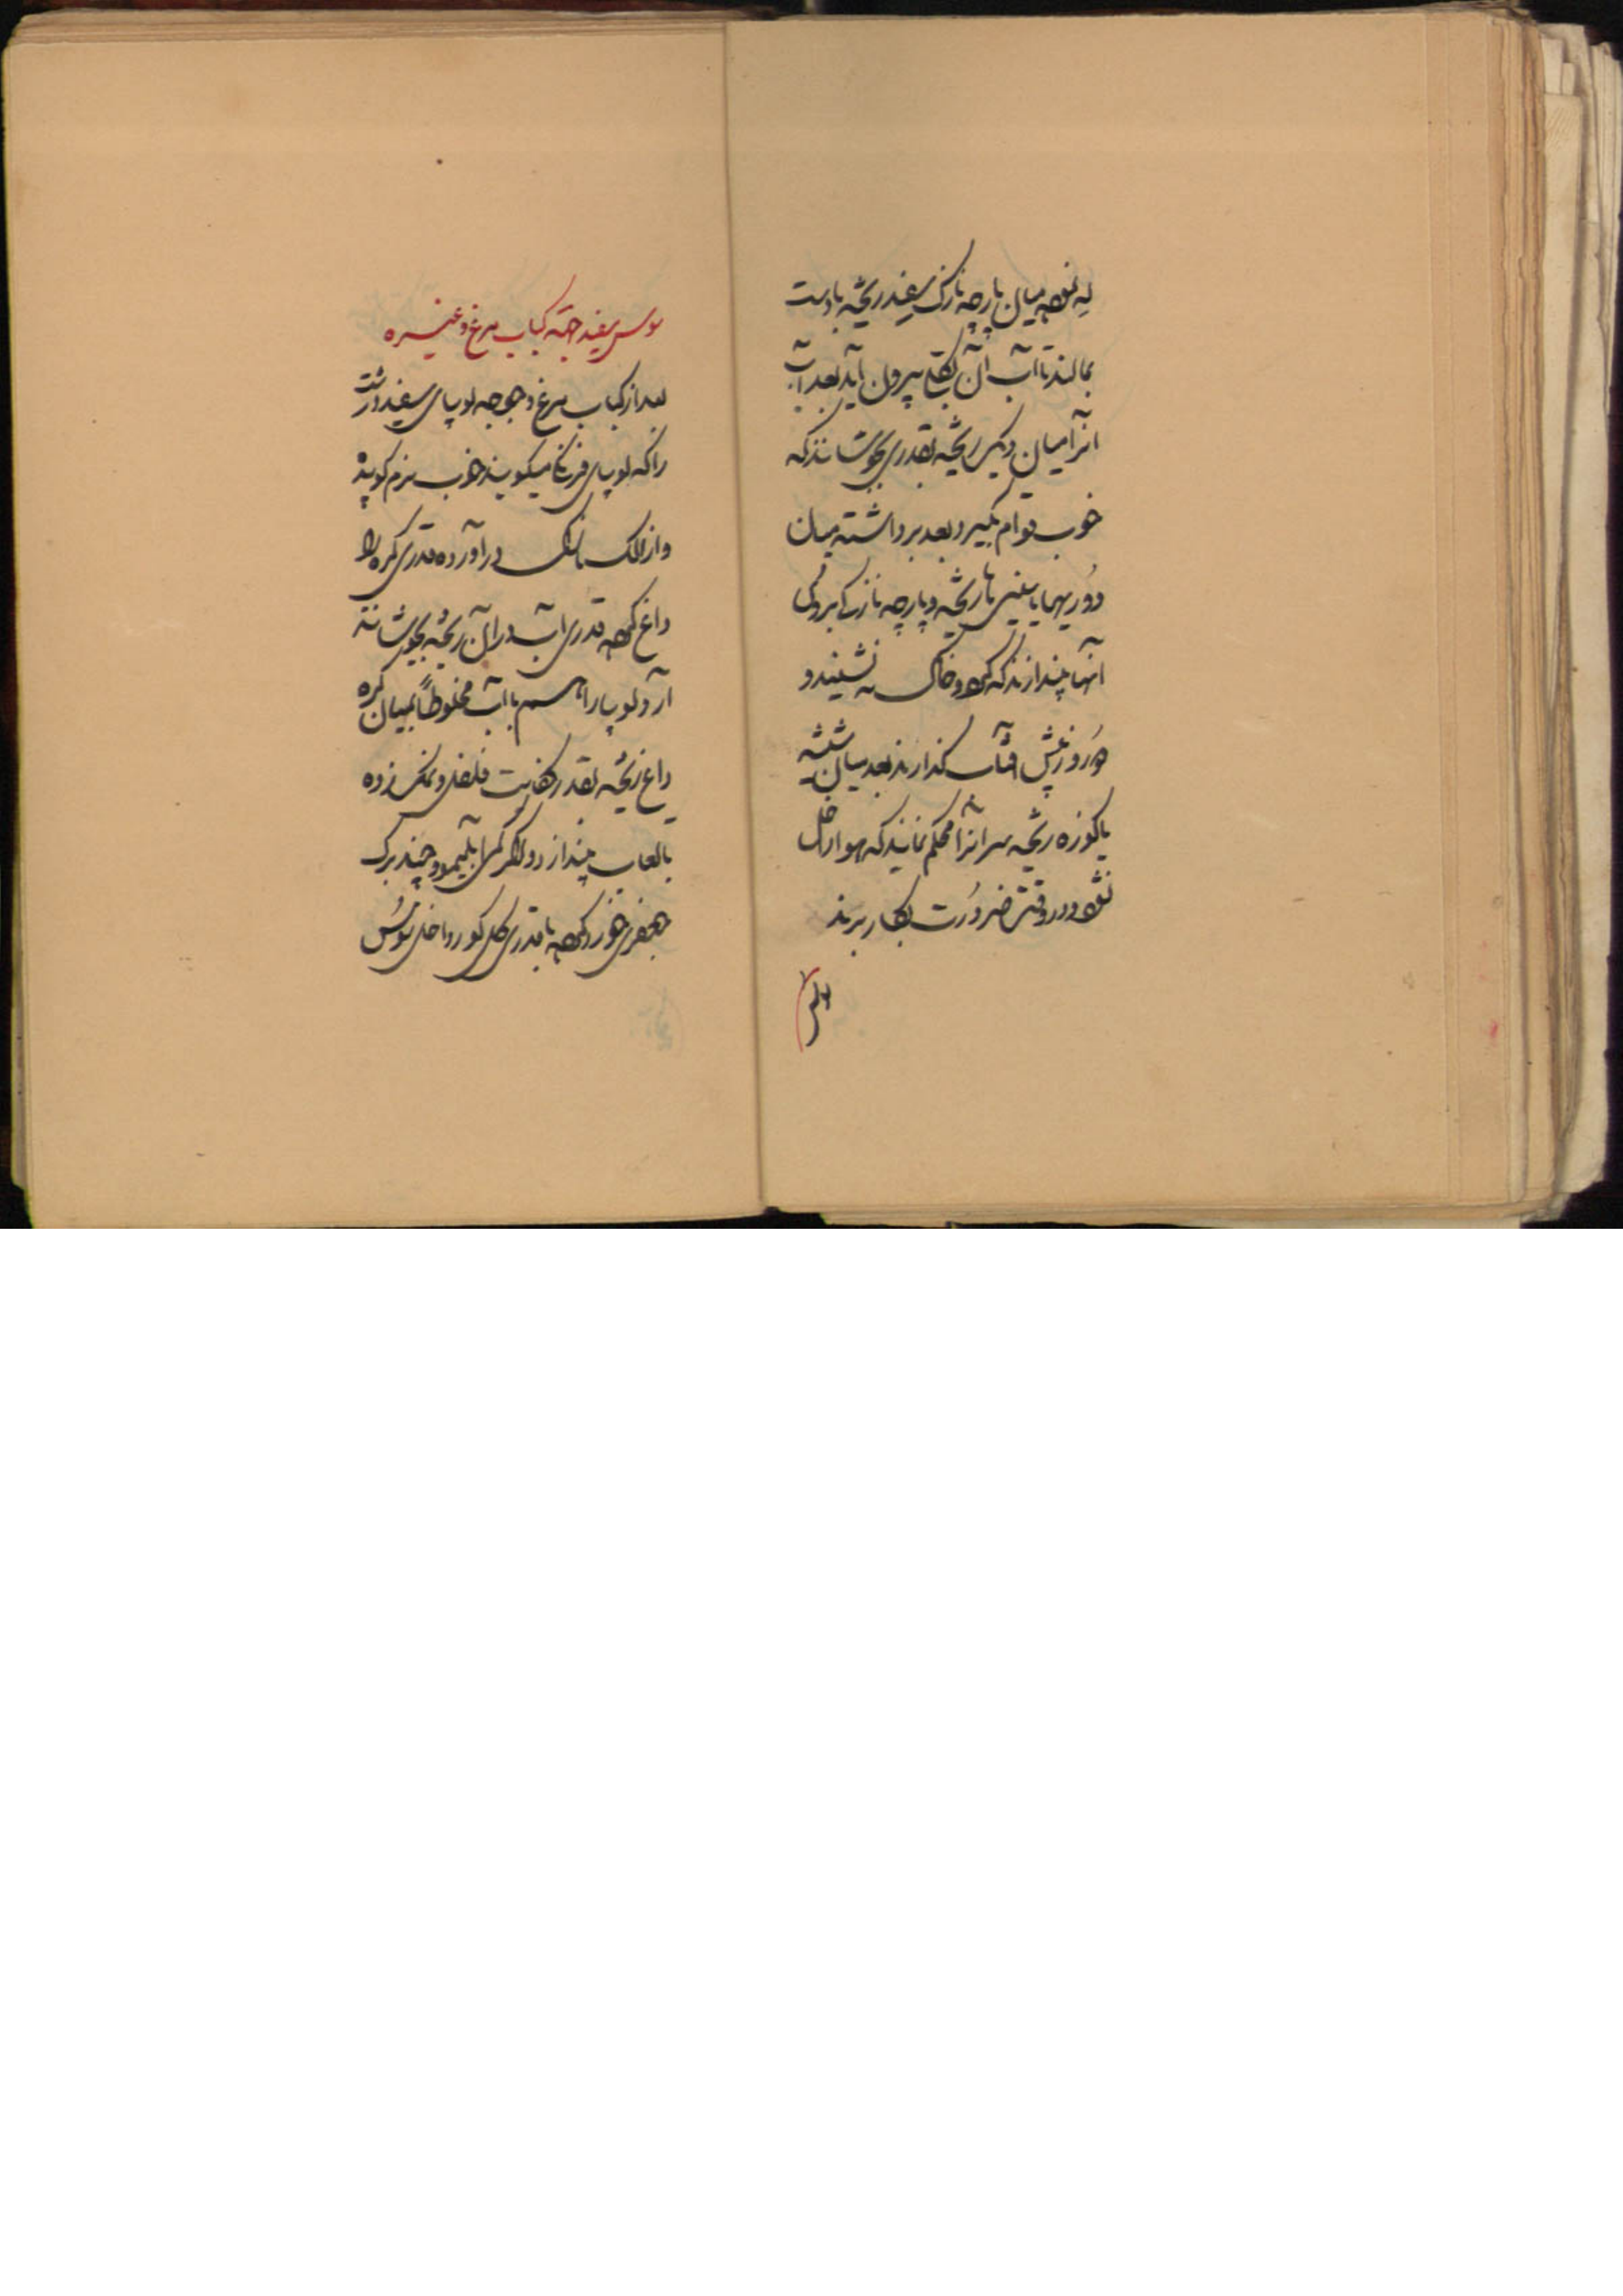 له نموده میان پارچه نازک سفید ریخته با دست
بمالند تا آب آن بکلی بیرون آید بعد آب
انرا میان دیگ ریخته بقدری بجوشانند که
خوب قوام بگیرد بعد برداشته میان
دوریهها یا سینی ها ریخته و پارچه نازک بروی
آنها بیندازند که گرد و خاک نه نشیند و
هر روز پیش آفتاب گذارند بعد میان شیشه
یا کوزه ریخته سر انرا محکم نمایند که هوا داخل
نشود و در وقت ضرورت بکار برند
سوس
سوس سفید جهته کباب مرغ و غیره
بعد از کباب مرغ و جوجه لوبیای سفید درشت
را که لوبیای فرنگی میگویند خوب نرم کوبیده
و از الک در آورده قدری کره را
داغ کرده قدری آب در آن ریخته بجوشانند
آرد لوبیا را با آب مخلوطاً بمیان کره
داغ ریخته بقدر کفایت فلفل و نمک زده
بالعاب بیندازد و اگر کمی آبلیمو و چند برگ
جعفری خورد کرده با قدری گل کور داخل سوس